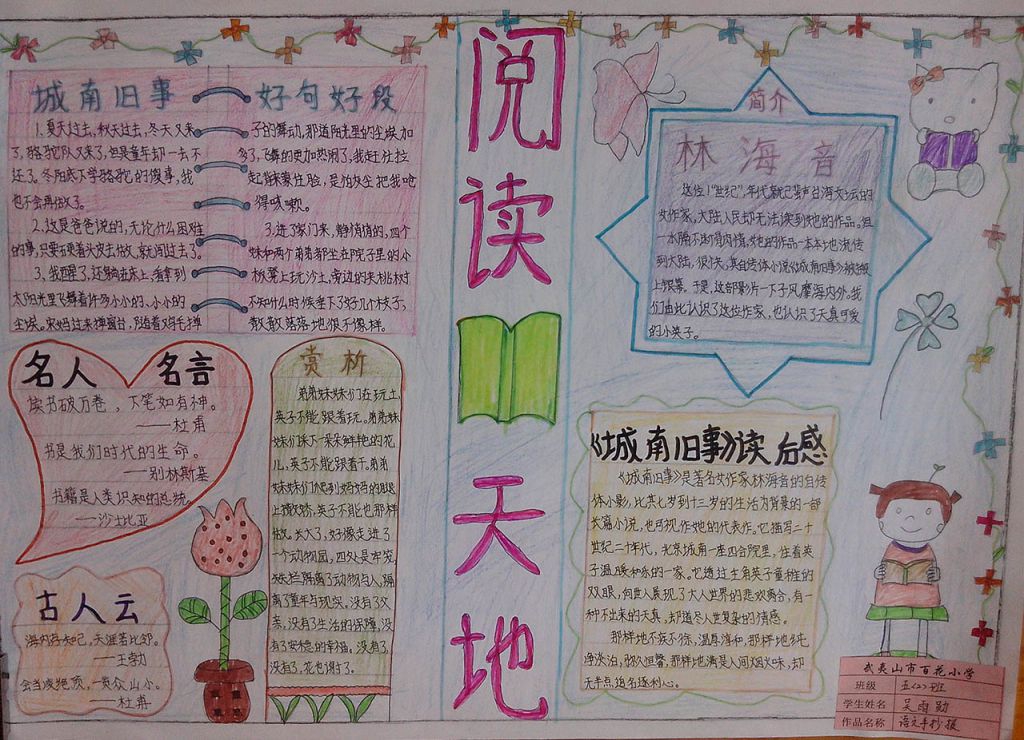 城南旧事
好句好段
1.夏天过去,秋天过去,冬天又来
了,骆驼队又来了,但是童年却一去不
还了。冬阳底下学骆驼的傻事,我
也不会再做了。
2.这是爸爸说的,无论什么困难
的事,只要硬着头皮去做,就闯过去了。
3、我醒了,还躺在床上,看到
太阳光里飞舞着许多小小的、小小的
尘埃。宋妈过来掸窗台,
子的舞动,那道阳光里的尘埃加
多了,飞舞的更加热闹了,我赶忙拉
起被来蒙住脸,是怕灰尘把我呛
得咳嗽。
3.进了家门来,静悄悄的,四个
妹妹和两个弟弟都坐在院子里的小
板凳上玩沙土,旁边的夹桃树
不知什么时候垂下了好几个枝子,
散散落落地很不像样。
名人 名言
读书破万卷,下笔如有神。
——杜甫
书是我们时代的生命。
——别林斯基
书籍是人类识知的总统。
——沙士比亚
古人云
海内存知己,天涯若比邻。
——王勃
会当凌绝顶,一览众山小。
——杜甫
赏析
弟弟妹妹们在玩土,
英子不能跟着玩。弟弟妹
妹们采下一朵朵鲜艳的花
儿,英子不能跟着干。弟弟
妹妹们爬到妈妈的腿
上撒娇,英子不能也那样
做。长大了,好像走进了
一个动物园,四处是牢笼,
栏隔离了动物与人,隔
离了童年与现实。没有了父
亲,没有了生活的保障,没
有了安稳的幸福。没有了,
没有了,花也谢了。
阅读天地
简介
林海音
这位"世纪",年代就已蜚声台湾文坛的
女作家,大陆人民却无法读到她的作品。但
一水隔不断骨肉情,她的作品一本本地流传
到大陆,很快,其自传体小说《城南旧事》被搬
上银幕。于是,这部影片一下子风靡海内外。我
们由此认识了这位作家,也认识了天真可爱
的小英子。
《城南旧事》读后感
《城南旧事》是著名女作家林海音的自传
体小影,比其七岁到十三岁的生活为背景的一部
长篇小说,也可视作她的代表作。它描写二十
世纪二十年代,北京城南一座四合院里,住着英
子温暖和乐的一家。它透过主角英子童稚的
双眼,向世人展现了大人世界的悲欢离合,有一
种不出来的天真,却道尽人世复杂的情感。
那样地不疾不徐,温厚淳和,那样地纯
净淡泊,弥久恒馨,那样地满是人间烟火味,却
无半点追名逐利心。
武夷山市百花小学
班级 五(2)班
学生姓名 吴雨勋
作品名称 语文手抄报